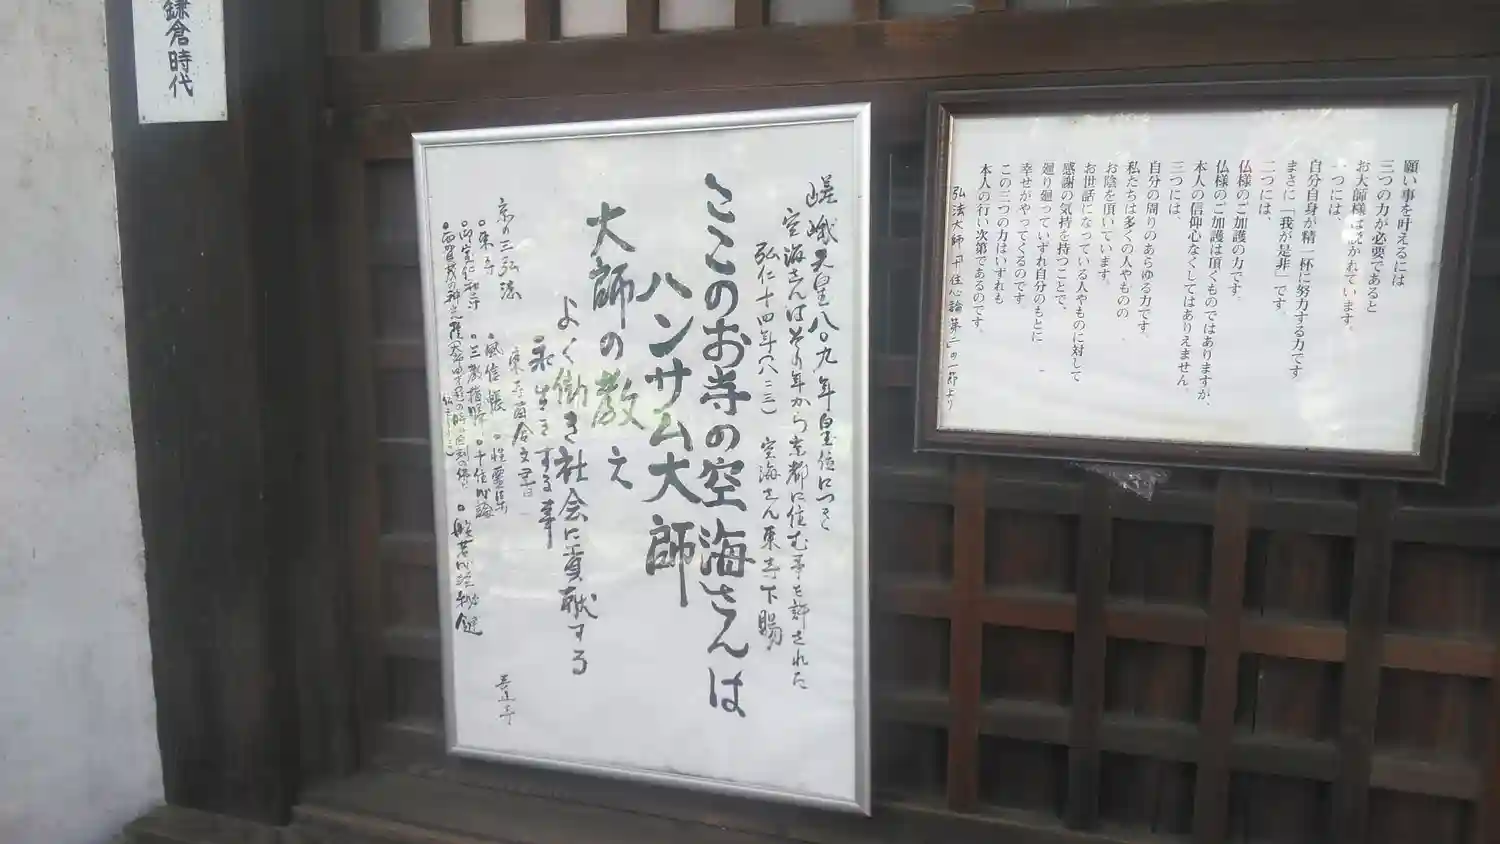 願い事を叶えるには
三つの力が必要であると
お大師様は説かれています。
一つには、
自分自身が精一杯に努力する力です
まさに「我が是非」です
二つには、
仏様のご加護の力です。
仏様のご加護は頂くものではありますが、
本人の信仰心なくしてはありえません
三つには、
自分の周りのあらゆる力です。
私たちは多くの人やものの
お陰を頂いています。
お世話になっている人やものに対して
感謝の気持を持つことで、
廻り廻っていずれ自分のもとに
幸せがやってくるのです
この三つの力はいずれも
本人の行い次第であるのです。
弘法大師「十住心論第二」の一節より
嵯峨天皇八〇九年皇位につき
空海さんはその年から京都に住む事を許された
弘仁十四年(八二三) 空海さん東寺下賜
ここのお寺の空海さんは
ハンサム大師
大師の教え
よく働き社会に貢献する
永生きする事
東寺百合文書
京の三弘法
東寺
御室仁和寺
風信帖
性霊集
三教指帰
十住心論
般若心経秘鍵
善道寺
鎌倉時代